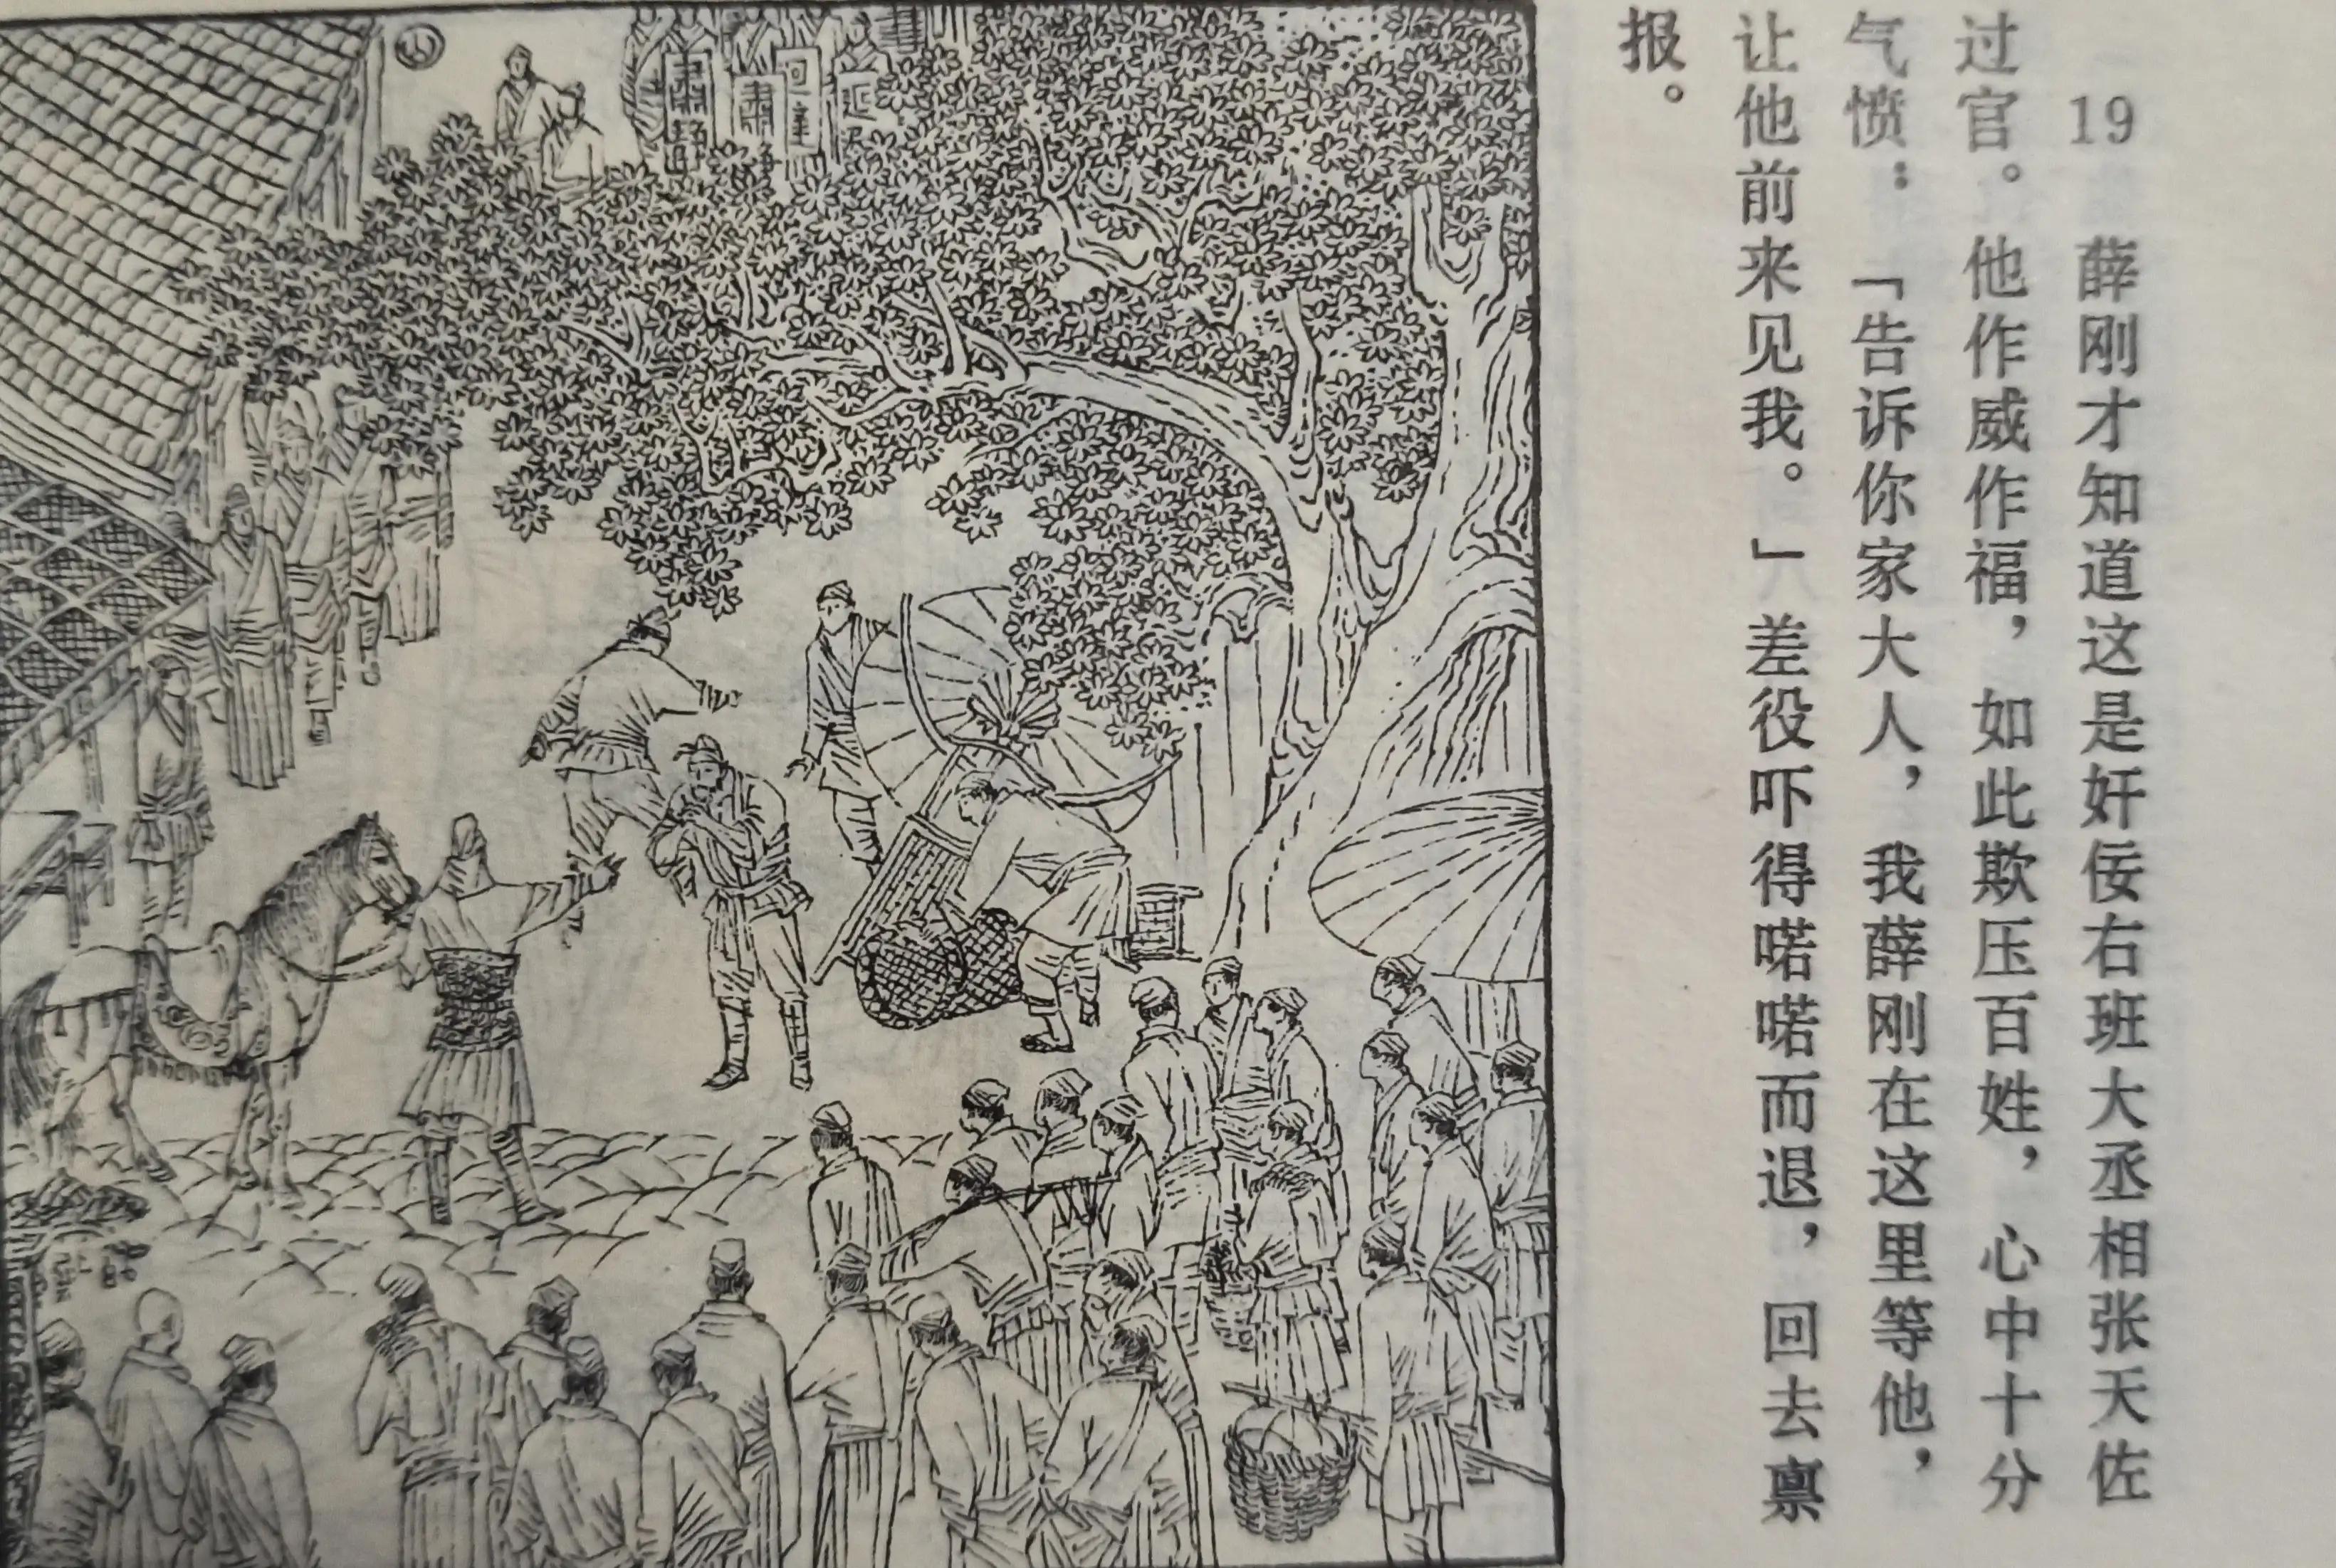 19 薛刚才知道这是奸佞右班大丞相张天佐
过官。他作威作福，如此欺压百姓，心中十分
气愤：「告诉你家大人，我薛刚在这里等他，
让他前来见我。」差役吓得喏喏而退，回去禀
报。
肃静
肃
回